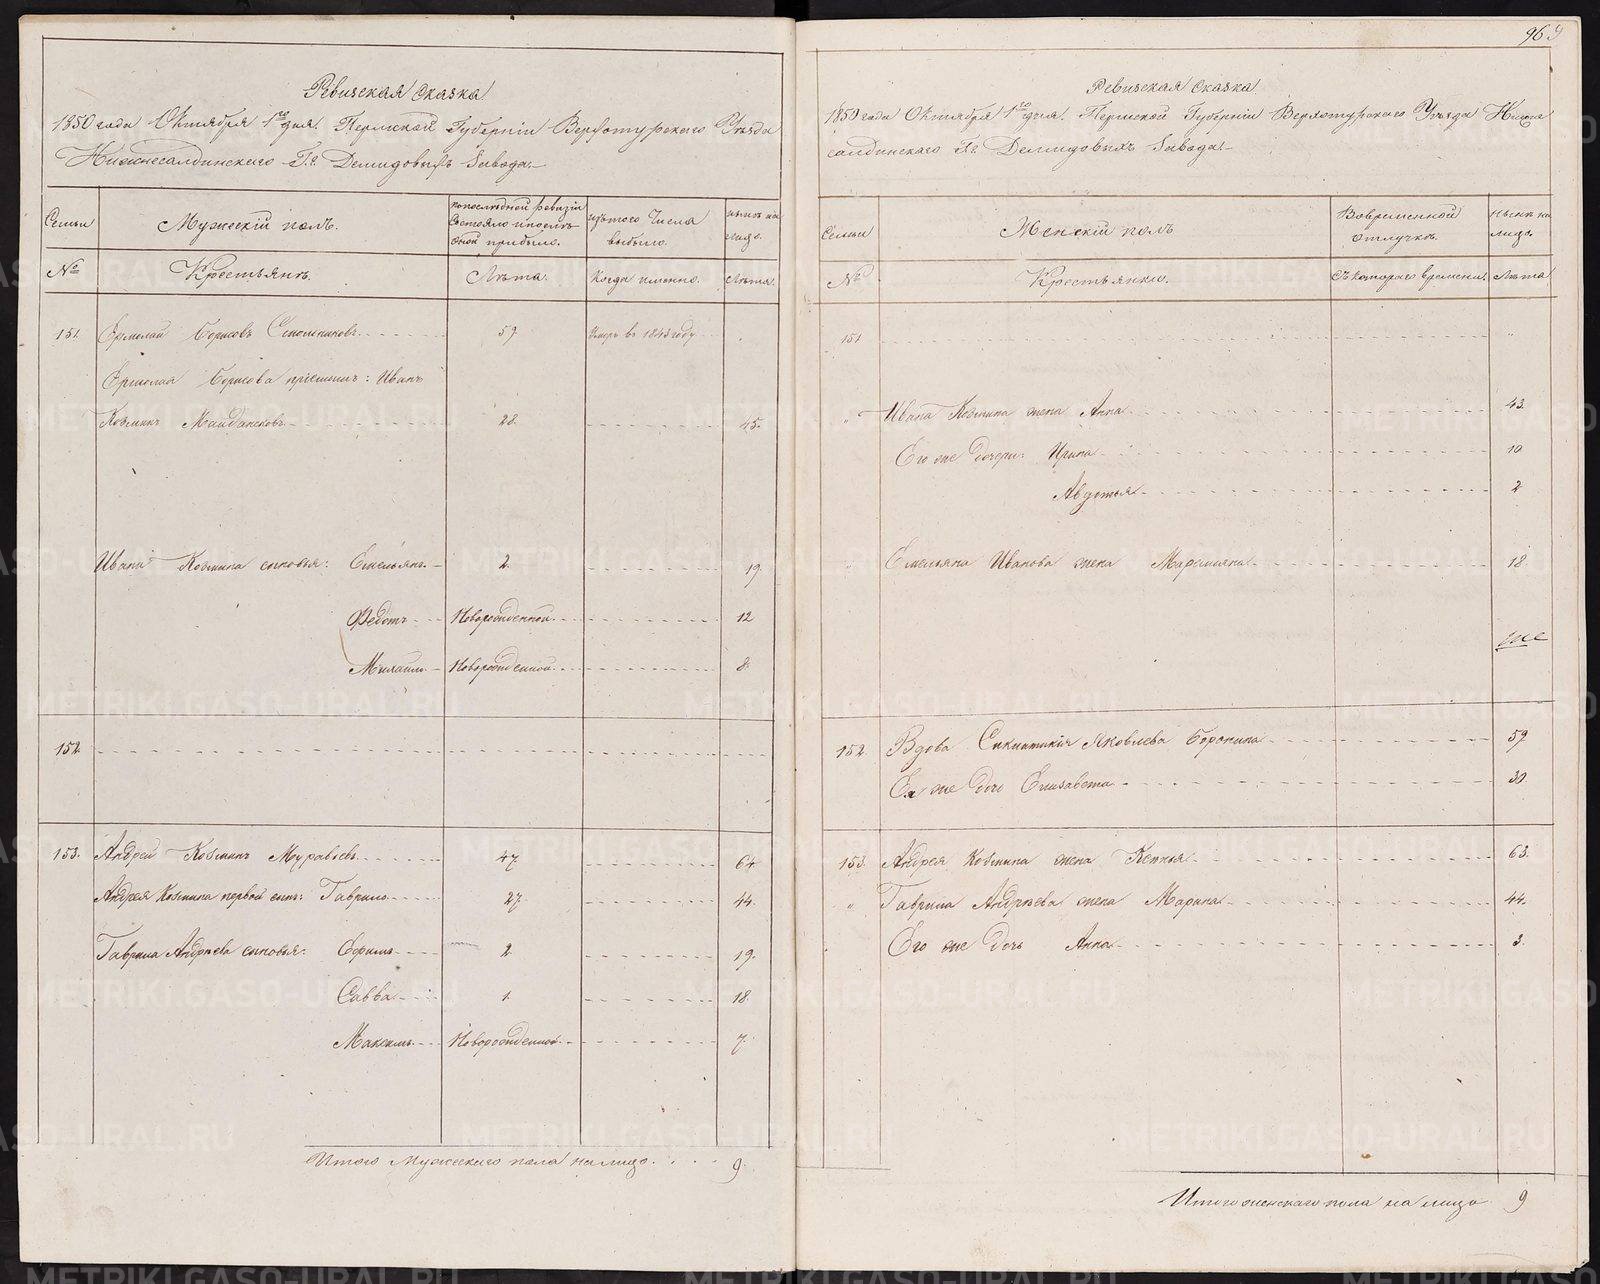 Ревизская сказка
1850 года Октября 1го дня. Пермской Губернии Верхотурского Уезда
Нижнесалдинского Г.г. Демидовыхъ Завода.
Семьи
Мужескій полъ.
по последней ревизіи
состояло и после
оной прибыло.
изъ того числа
выбыло.
ныне на
лицо.
№
Крестьянъ.
Лета.
Когда именно.
Лета.
151. Ермолай Борисовъ 59 Умеръ в 1843 году
Ермолая Борисова пріемышъ: Иванъ
Козминъ 28. 45.
Ивана Козмина сыновья: Емельянъ 2 19.
Федотъ Новорожденной 12
Михайло Новорожденной 8.
152.
153. Андрей Козминъ Муравьевъ 47 64
Андрея Козмина первой сынъ: Гаврило 27 44.
Гаврила Андреева сыновья: Ефимъ 2 19.
Савва 1 18.
Максимъ Новорожденной 7.
Итого Мужескаго пола на лицо 9
96
Ревизская сказка
1850 года Октября 1го дня. Пермской Губерніи Верхотурского Уезда Нижне
салдинского Гг. Демидовыхъ Завода.
Семьи
Женскій полъ
Во временной
отлучке.
Ныне на
лицо.
№
Крестьянки.
Съ котораго времени.
Лета
151
" Ивана Козмина жена Анна 43.
Его же дочери: Ирина 10
Авдотья 2
" Емельяна Иванова жена Маремьяна 18
152. Вдова Яковлева 59
Ея же дочь Елизавета 30
153. Андрея Козмина жена Ксенья 63.
" Гаврила Андреева жена Марина 44.
Его же дочь Анна 3.
Итого женскаго пола на лицо 9
METRIKI.GASO-URAL.RU